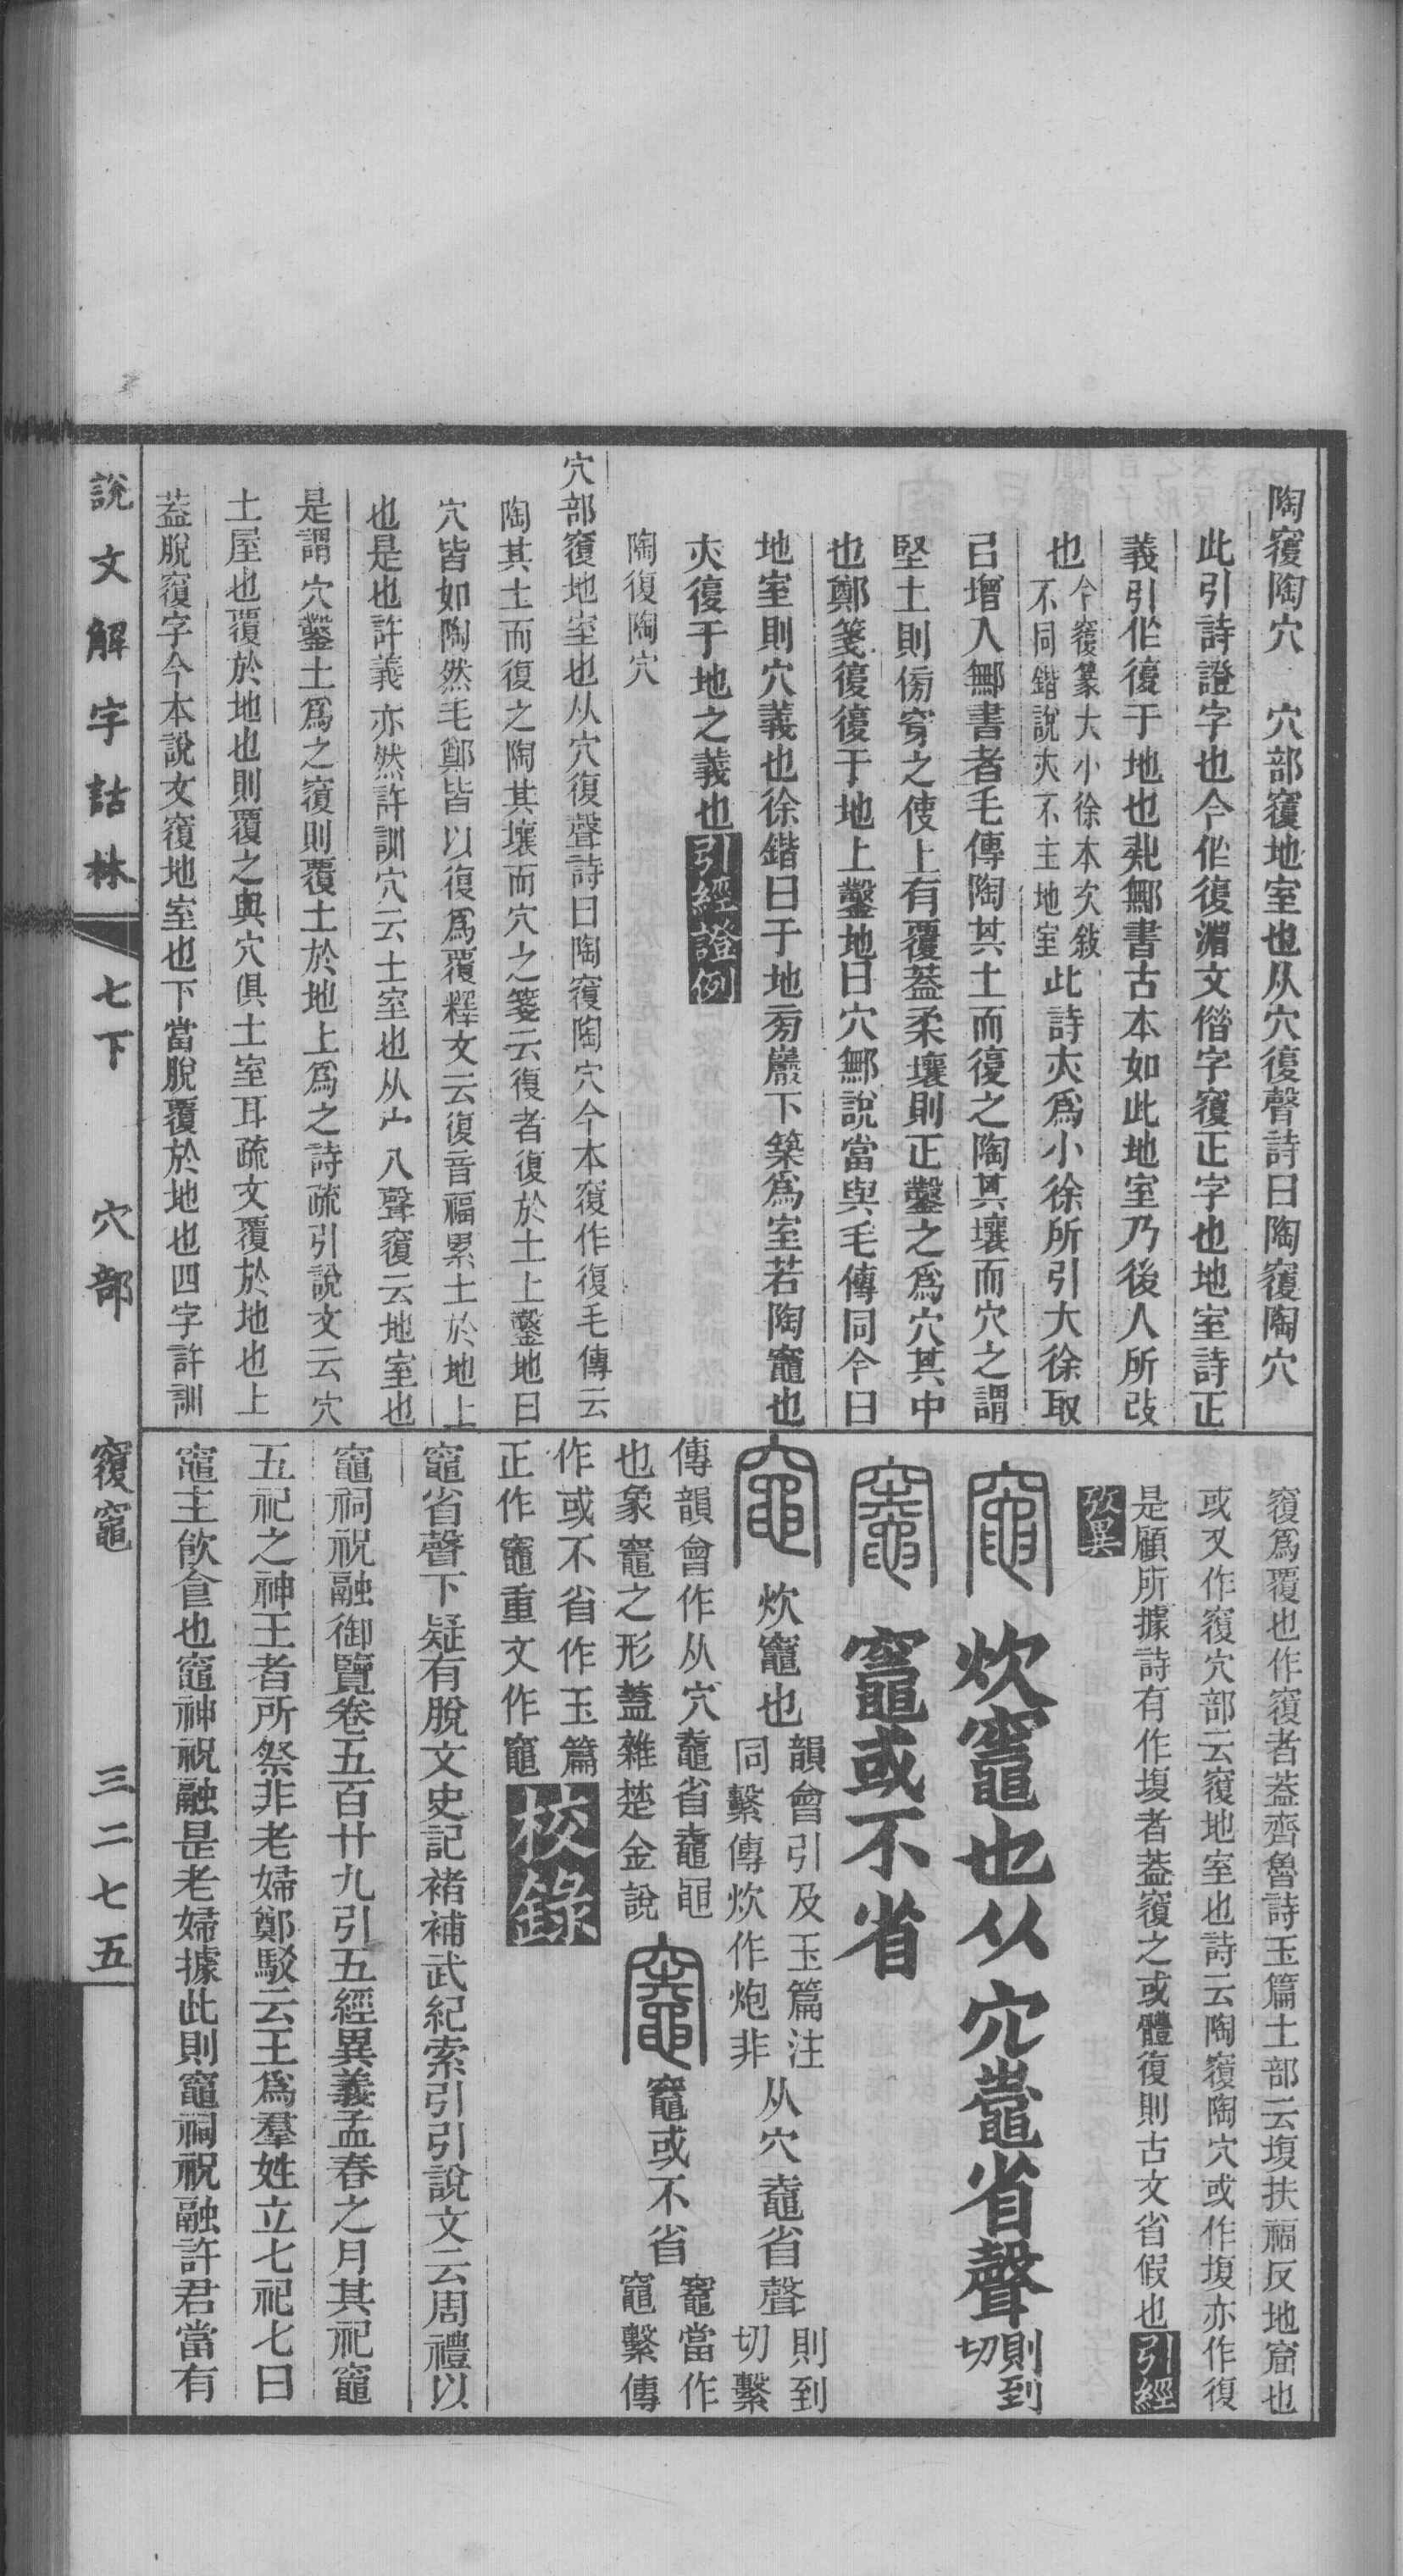 陶䆫陶穴　穴部䆫地室也从穴復聲詩曰陶䆫陶穴
此引詩證字也今㑅復湄文借字䆫正字也地室詩正
義引㑅復于地也
書古本如此地室乃後人所改
也今䆫篆大小徐本次敍
不同鍇說亦不主地室此詩亦爲小徐所引大徐取
㠯增入
書者毛傳陶其土而復之陶其壤而穴之謂
堅土則傍穿之使上有覆蓋柔壤則正鑿之爲穴其中
也鄭箋復復于地上鑿地曰穴
說當與毛傳同今曰
地室則穴義也徐鍇曰于地旁巖下築爲室若陶竈也
亦復于地之義也引經證例
陶復陶穴
穴部䆫地室也从穴復聲詩曰陶䆫陶穴今本䆫作復毛傳云
陶其土而復之陶其壤而穴之箋云復者復於土上鑿地曰
穴皆如陶然毛鄭皆以復爲覆釋文云復音福累土於地上
也是也許義亦然許訓穴云土室也从宀八聲䆫云地室也
是謂穴鑿土爲之䆫則覆土於地上爲之詩疏引說文云穴
土屋也覆於地也則覆之與穴俱土室耳疏文覆於地也上
蓋脫䆫字今本說文䆫地室也下當脫覆於地也四字許訓
䆫爲覆也作䆫者蓋齊魯詩玉篇土部云㙏扶福反地窟也
或又作䆫穴部云䆫地室也詩云陶䆫陶穴或作㙏亦作復
是顧所據詩有作㙏者蓋䆫之或體復則古文省假也引經
攷異
竈 炊竈也从穴鼀省聲則到
切
竈 竈或不省
竈 炊竈也韻會引及玉篇注
同繫傳炊作炮非从穴鼀省聲則到
切繫
傳韻會作从穴鼀省鼀黽
也象竈之形蓋雜楚金說竈 竈或不省竈當作
竈繫傳
作或不省作玉篇
正作竈重文作竈校錄
竈省聲下疑有脫文史記褚補武紀索引引說文云周禮以
竈祠祝融御覽卷五百廿九引五經異義孟春之月其祀竈
五祀之神王者所祭非老婦鄭駁云王爲羣姓立七祀七曰
竈主飲食也竈神祝融是老婦據此則竈祠祝融許君當有
說文解字詁林 七下 穴部 䆫竈 三二七五